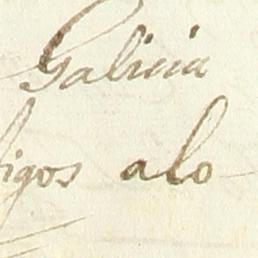 Galicia
tigos alo